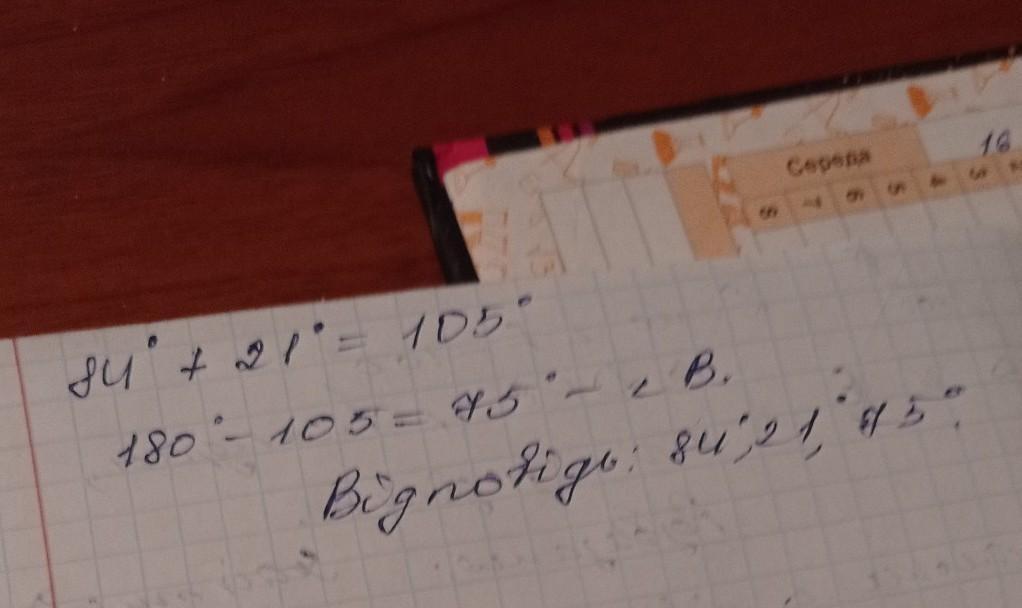 Середа
16
8 7 6 5 4 3 2
84° + 21° = 105°
180° - 105 = 75° - ∠ B.
Відповідь: 84°, 21°, 75°.